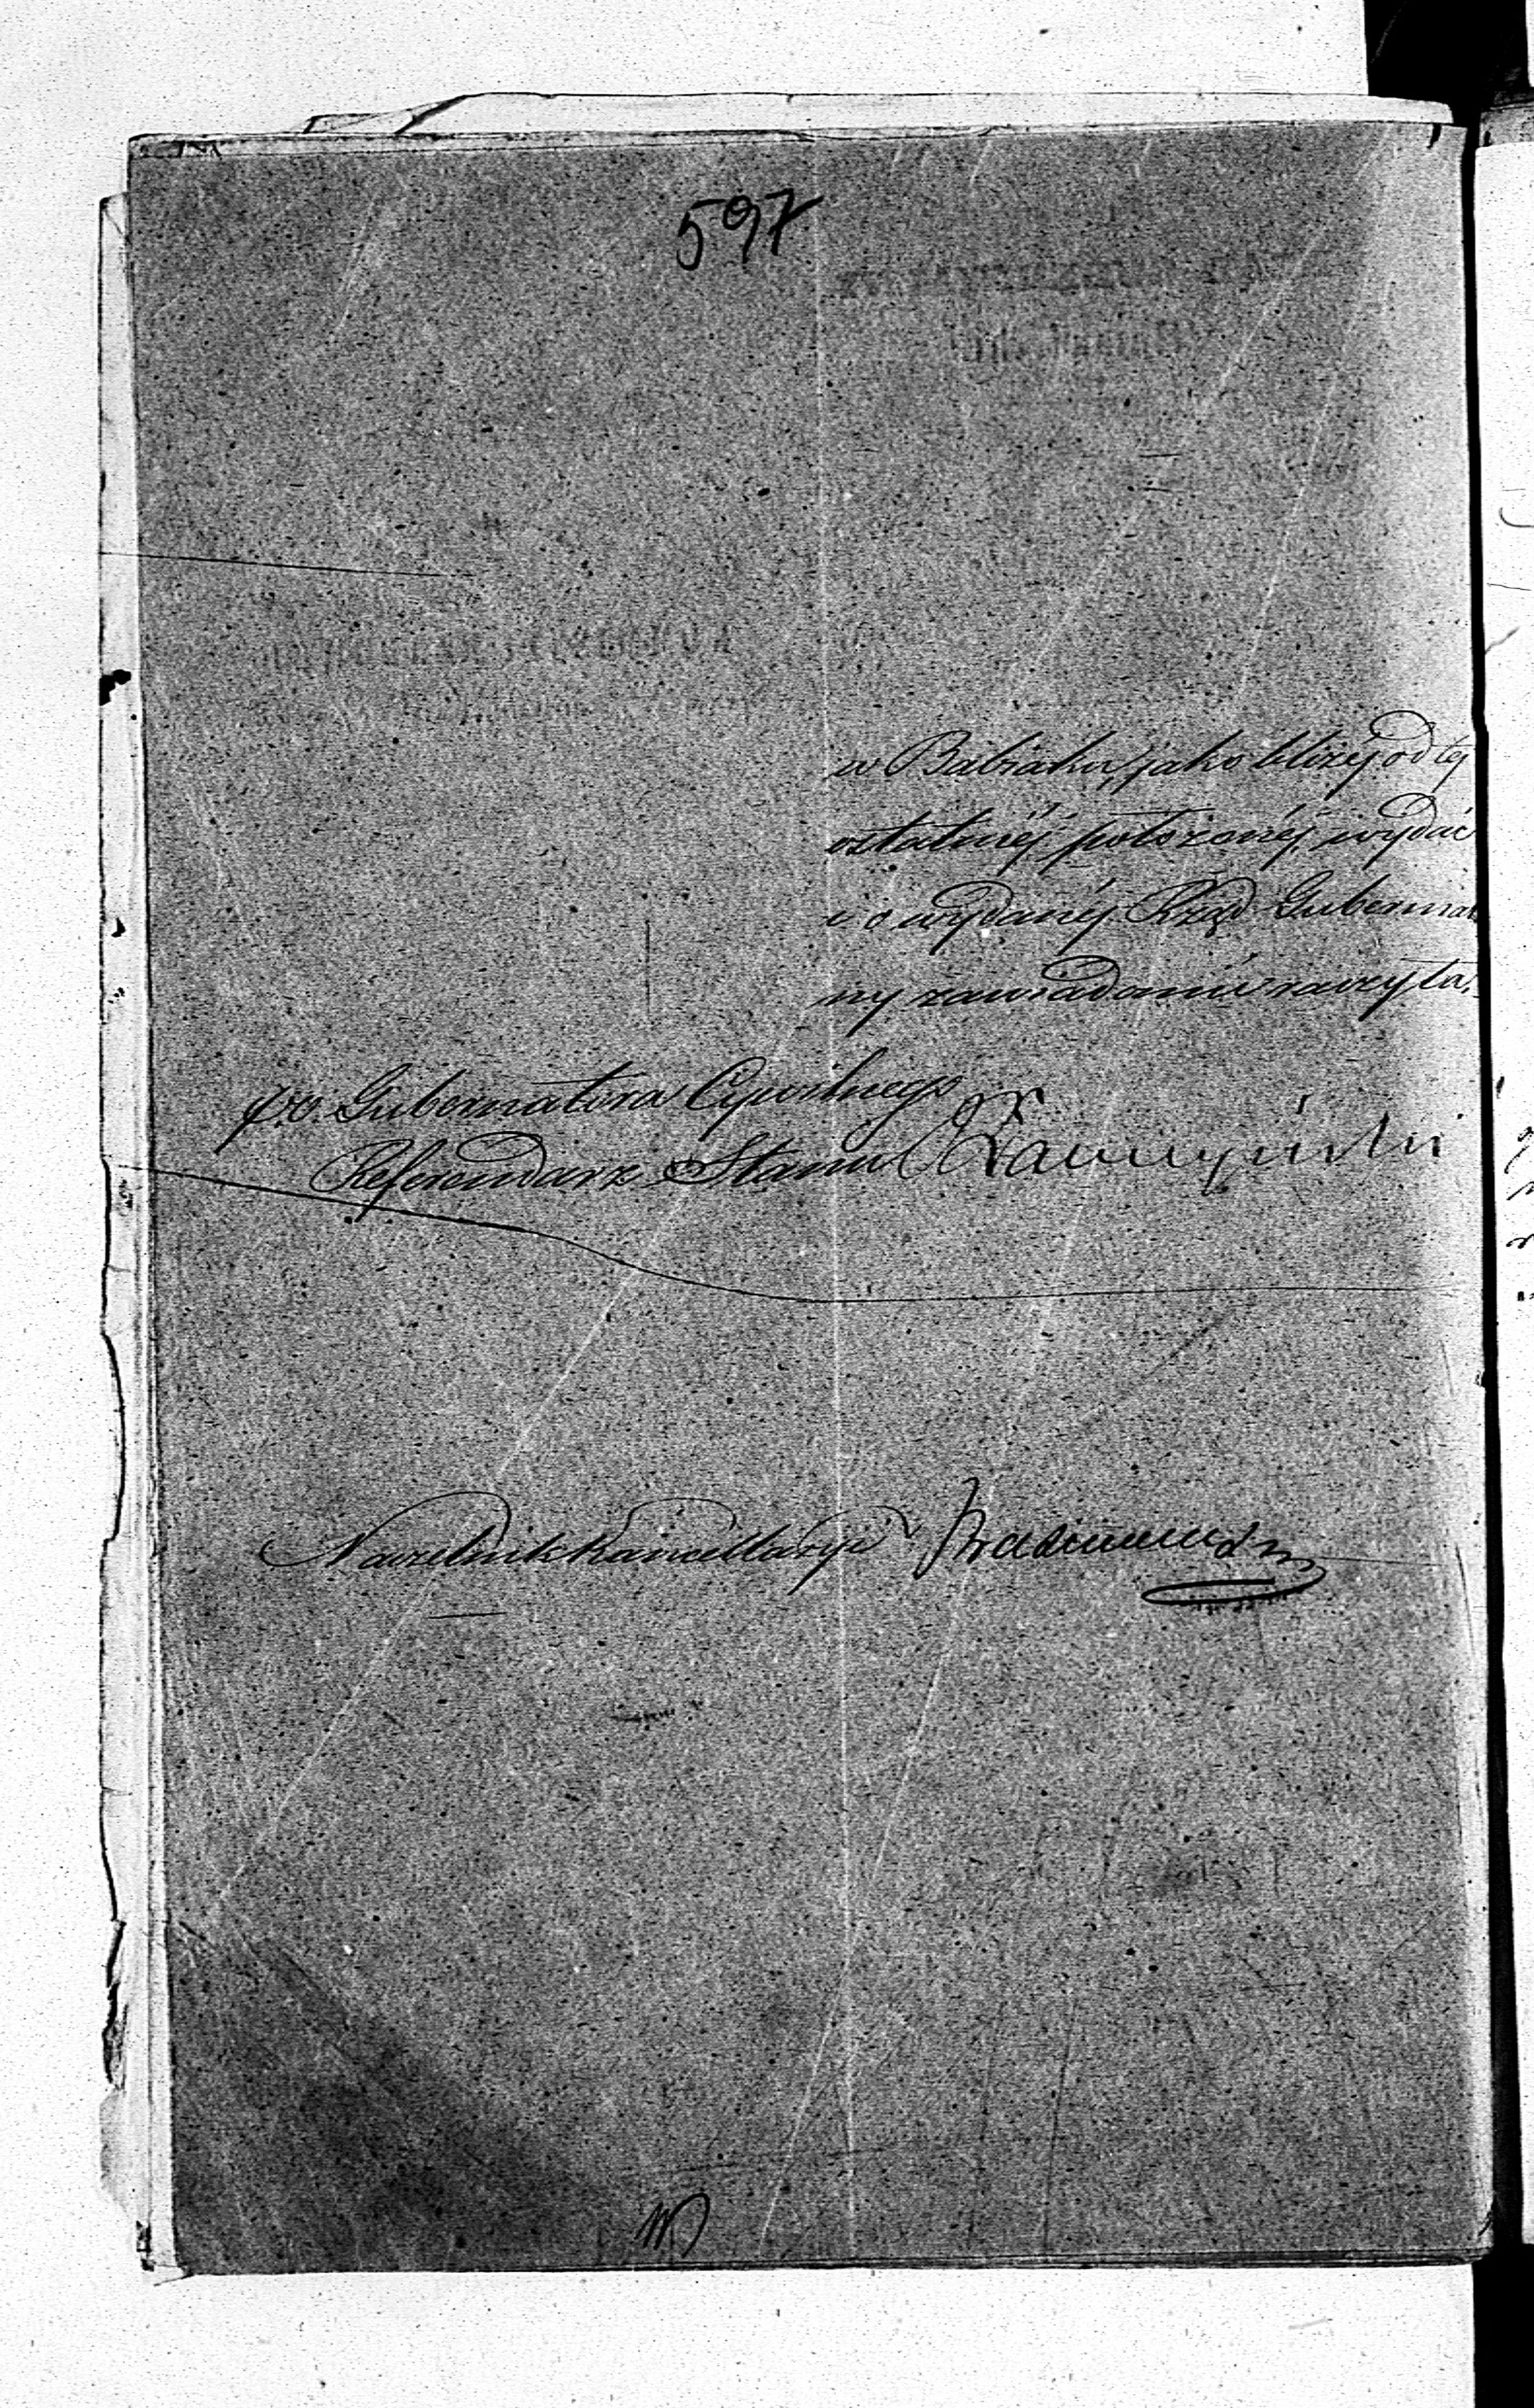 597
w Babiaku, jako bliżej od tej
ostatniéj położonéj, wydać
i o wydanéj Rząd Gubernial
ny zawiadomić raczyła.
p.o. Gubernatora Cywilnego
Referendarz Stanu
Naczelnik Kancellaryi